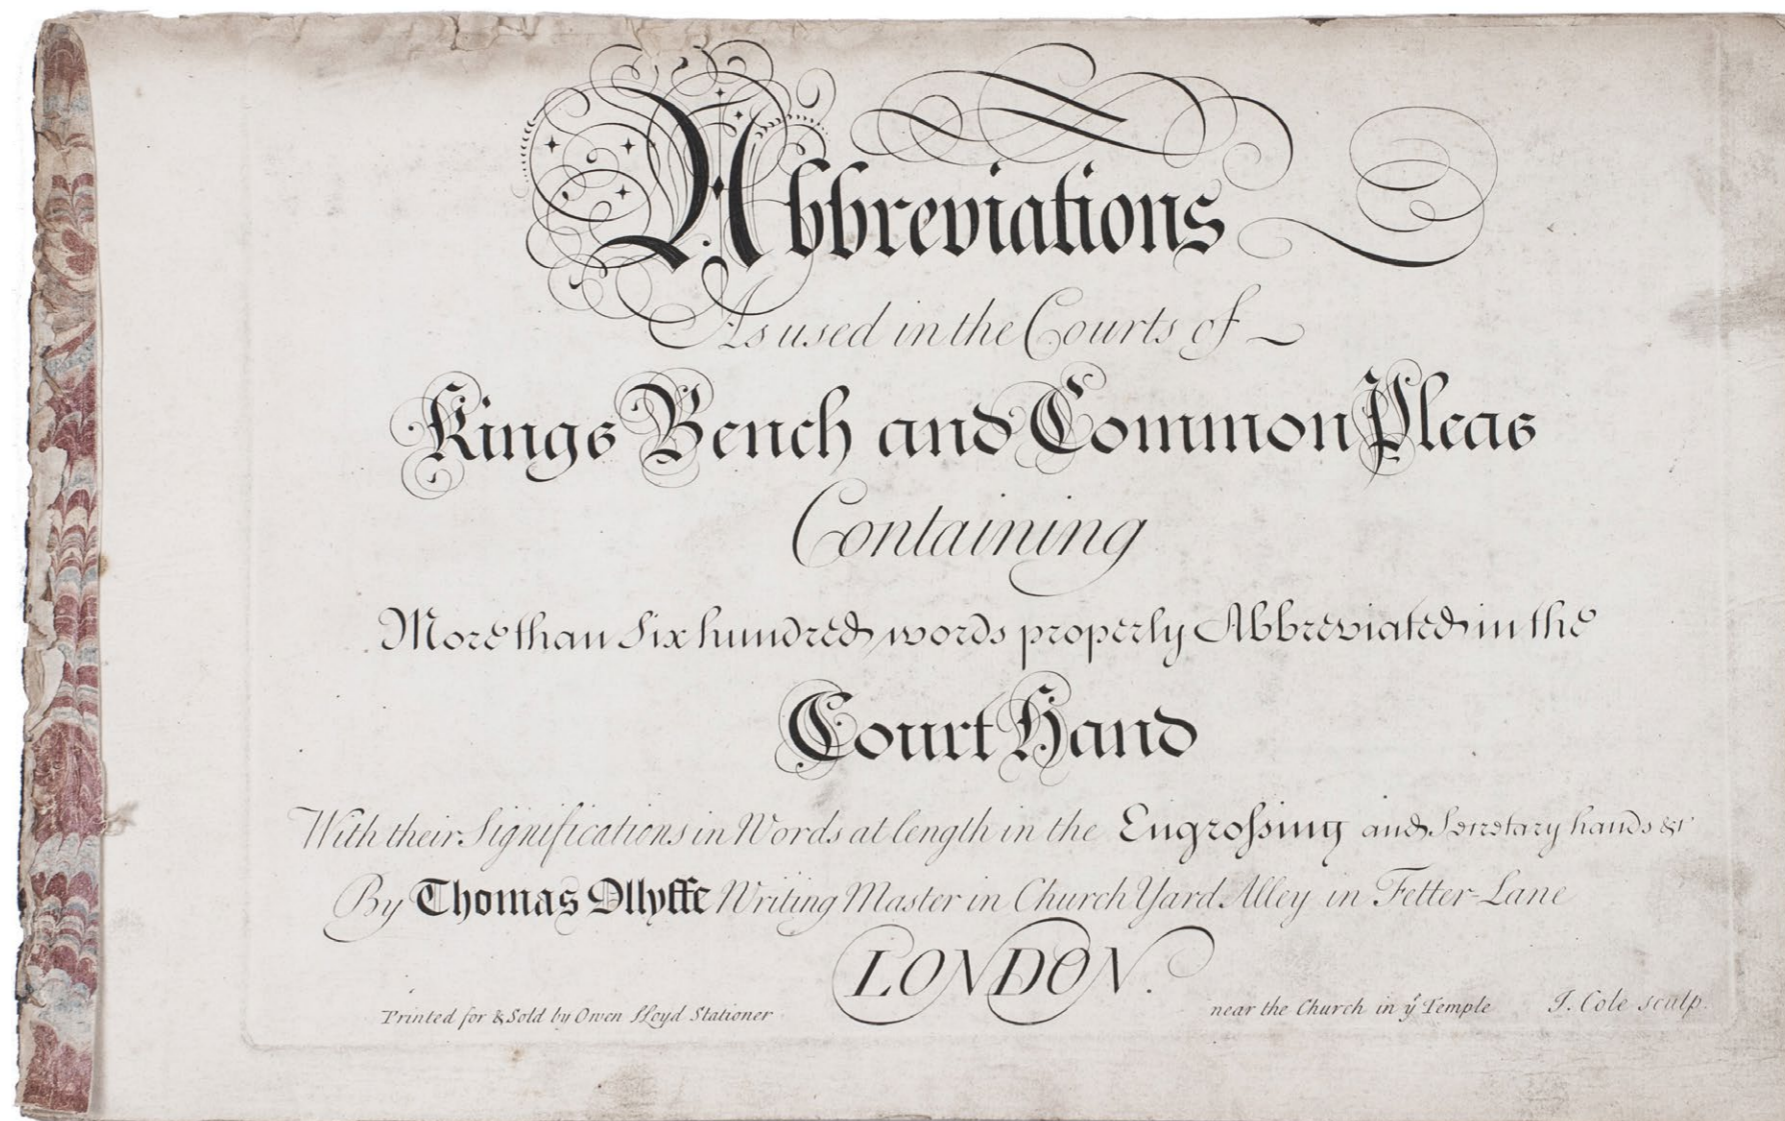 Abbreviations
As used in the Courts of
Kings Bench and Common Pleas
Containing
More than Six hundred words properly Abbreviated in the
Court Hand
With their Significations in Words at length in the Engrossing and Secretary hands &c
By Thomas Ollyffe Writing Master in Church Yard Alley in Fetter-Lane
LONDON.
Printed for & Sold by Owen Lloyd Stationer near the Church in yͤ Temple J. Cole sculp.